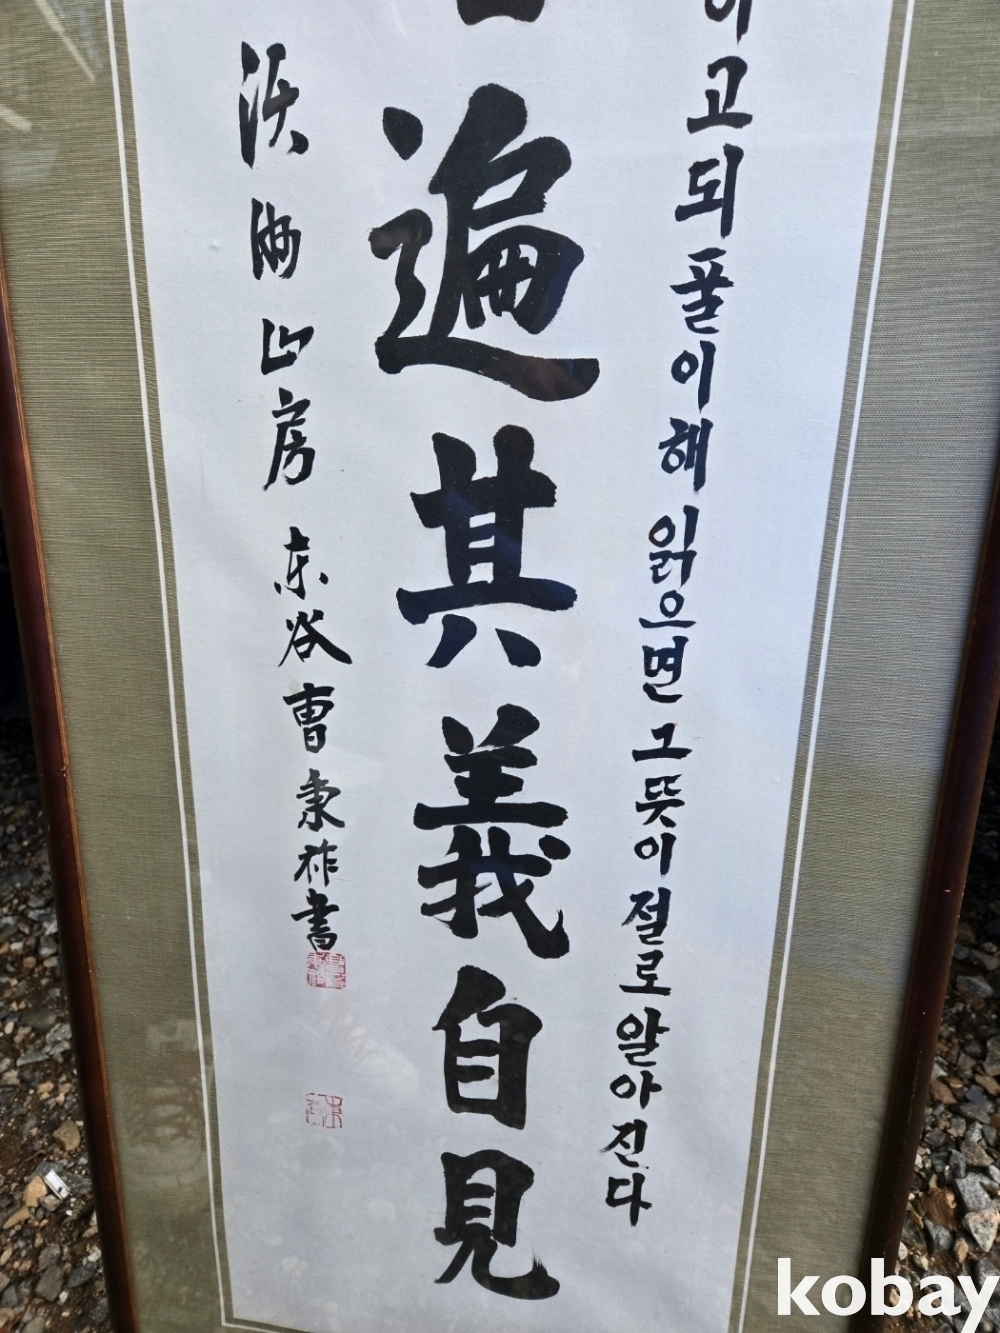 이고되풀이해읽으면그뜻이절로알아진다
遍其義自見
沃海山房 东谷曺秉祚書
kobay